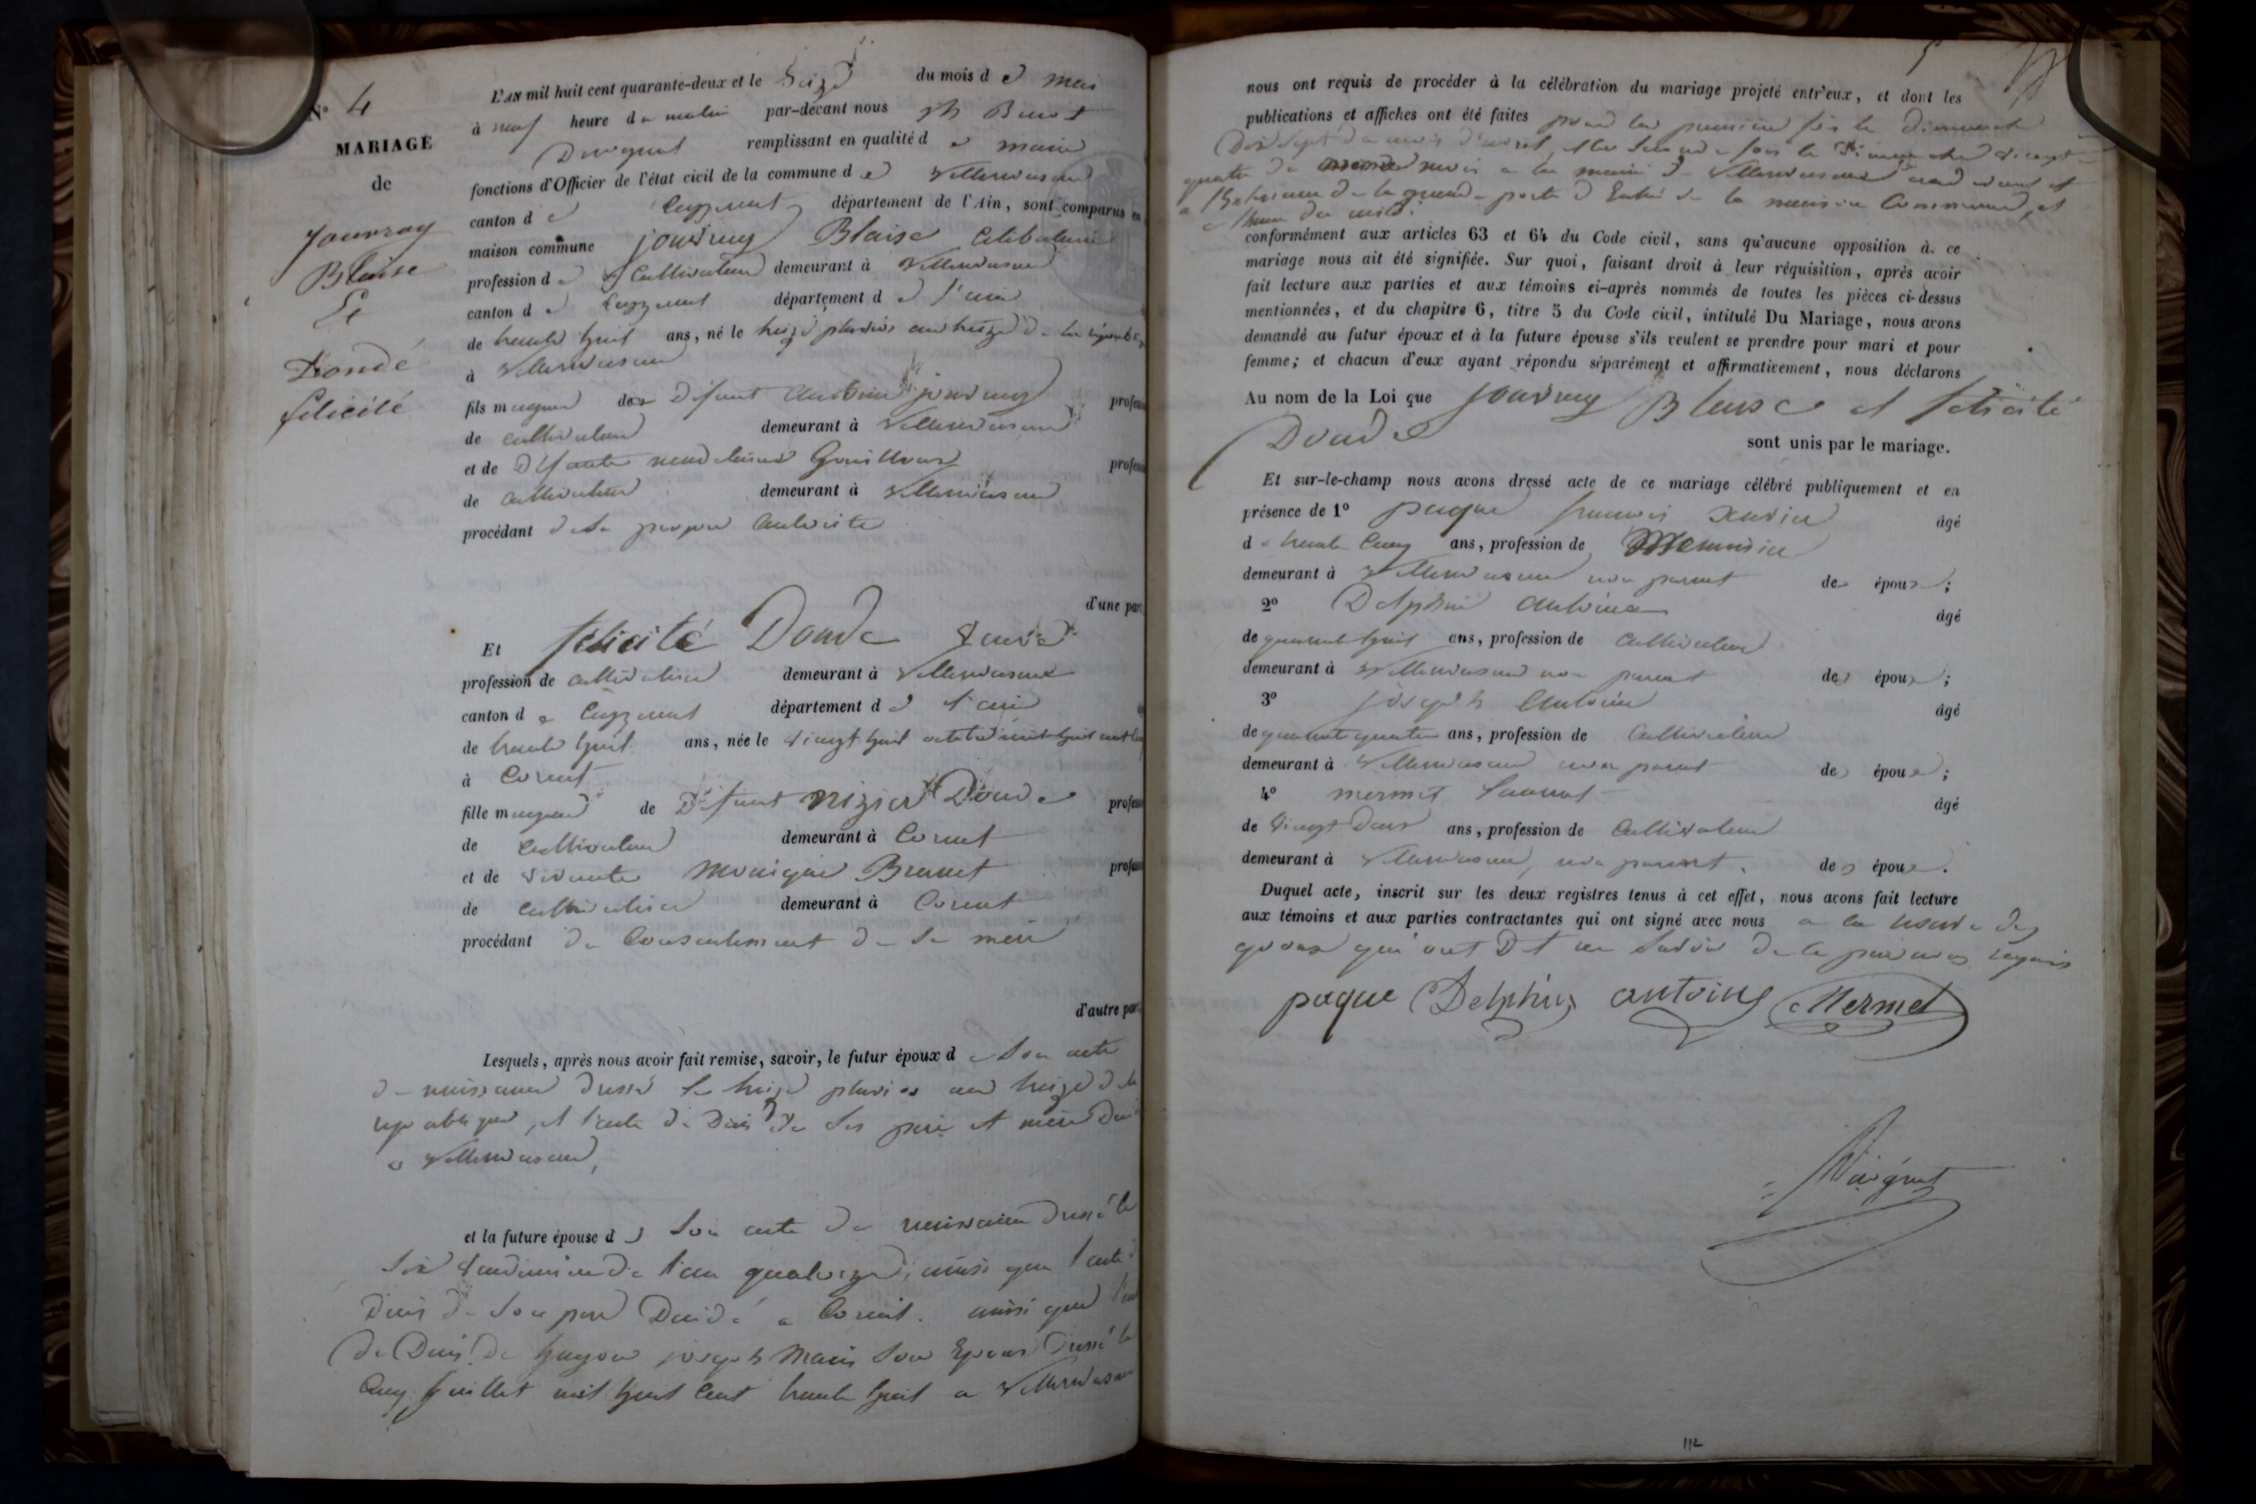 N° 4
MARIAGE
de
Jouvray
Blaise
Et
Dondé
félicité
L'AN mil huit cent quarante-deux et le Seize du mois de mai
à neuf heure du matin par-devant nous
remplissant en qualité de maire
fonctions d'Officier de l'état civil de la commune de Villereversure
canton de Ceyzeriat département de l'Ain, sont comparus en
maison commune jouvray Blaise Celibataire
profession de Cultivateur demeurant à Villereversure
canton de Ceyzeriat département de l'ain
de trente huit ans, né le treize pluviose an treize de la république
à Villereversure
fils majeur de Défunt Antoine jouvray profession
de cultivateur demeurant à Villereversure
et de Défunte profession
de cultivateur demeurant à Villereversure
procédant de sa propre autorité
d'une part
Et félicité Donde veuve
profession de cultivatrice demeurant à Villereversure
canton de Ceyzeriat département de l'ain
de trente huit ans, née le vingt huit octobre mil huit cent
à Corent
fille majeure de Défunt nizier Donde profession
de Cultivateur demeurant à Corent
et de vivante Monique Brunet profession
de cultivatrice demeurant à Corent
procédant du Consentement de sa mère
d'autre part
Lesquels, après nous avoir fait remise, savoir, le futur époux de son acte
de naissance dressé le treize pluviose an treize de la
république, et l'acte de Décès de ses père et mère
a Villereversure,
et la future épouse de son acte de naissance dressé le
six vendemiaire de l'an quatorze, ainsi que l'acte
Décès de son père Décédé a Corent. ainsi que
de Décès de joseph Marie son Epoux Dressé le
Cinq juillet mil huit Cent trente huit a Villereversure
5
nous ont requis de procéder à la célébration du mariage projeté entr'eux, et dont les
publications et affiches ont été faites pour la première fois le dimanche
Dix Sept du mois d'avril, et la Seconde fois le Dimanche vingt
quatre du même mois a la mairie de Villereversure
a de la grande porte d'Entrée de la maison Commune, et
heure de midi.
conformément aux articles 63 et 64 du Code civil, sans qu'aucune opposition à ce
mariage nous ait été signifiée. Sur quoi, faisant droit à leur réquisition, après avoir
fait lecture aux parties et aux témoins ci-après nommés de toutes les pièces ci-dessus
mentionnées, et du chapitre 6, titre 5 du Code civil, intitulé Du Mariage, nous avons
demandé au futur époux et à la future épouse s'ils veulent se prendre pour mari et pour
femme; et chacun d'eux ayant répondu séparément et affirmativement, nous déclarons
Au nom de la Loi que Jouvray Blaise et félicité
Donde sont unis par le mariage.
Et sur-le-champ nous avons dressé acte de ce mariage célébré publiquement et en
présence de 1° paque francois Xavier âgé
de trente Cinq ans, profession de Menuisier
demeurant à Villereversure non parent des époux;
2° Delphin Antoine âgé
de quarante huit ans, profession de Cultivateur
demeurant à Villereversure non parent des époux;
3° joseph Antoine âgé
de quarante quatre ans, profession de Cultivateur
demeurant à Villereversure non parent des époux;
4° mermet âgé
de vingt Deux ans, profession de Cultivateur
demeurant à Villereversure, non parent. des époux.
Duquel acte, inscrit sur les deux registres tenus à cet effet, nous avons fait lecture
aux témoins et aux parties contractantes qui ont signé avec nous a la réserve des
époux qui ont Dit ne savoir de ce requis
paque Delphin antoine Mermet
112